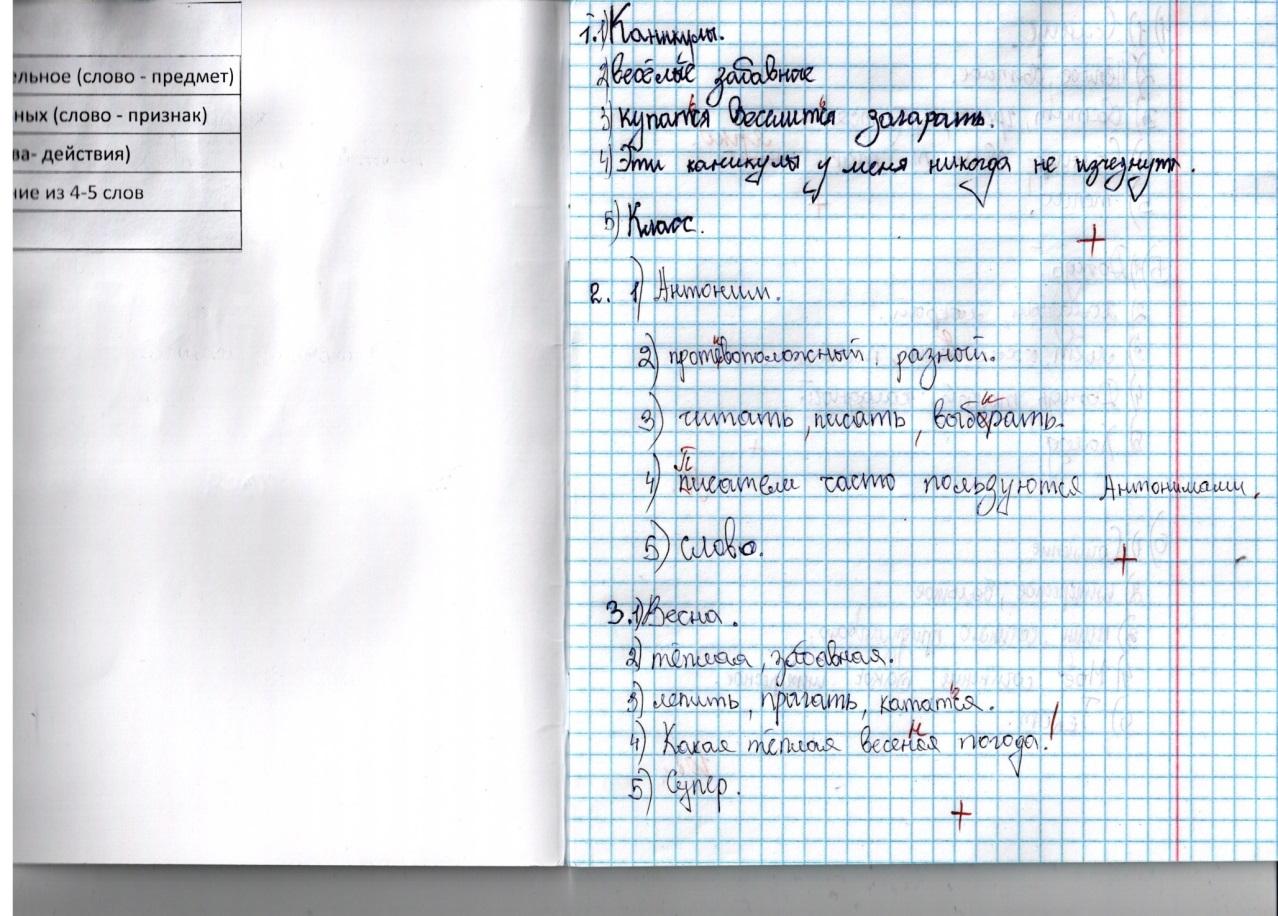 ельное (слово - предмет)
ных (слово - признак)
ва- действия)
ие из 4-5 слов
1.1) Каникулы.
2) весёлые забавные
3) купатся Веселится загарать.
4) Эти каникулы у меня никогда не изчезнут.
5) Класс.
+
2. 1) Антоним.
2) противоположный, разной.
3) читать, писать, выбирать.
4) Писатели часто пользуются Антонимами.
5) слово.
+
3.1) Весна.
2) тёплая, забавная.
3) лепить, прыгать, кататься.
4) Какая тёплая весенняя погода!
5) Супер.
+